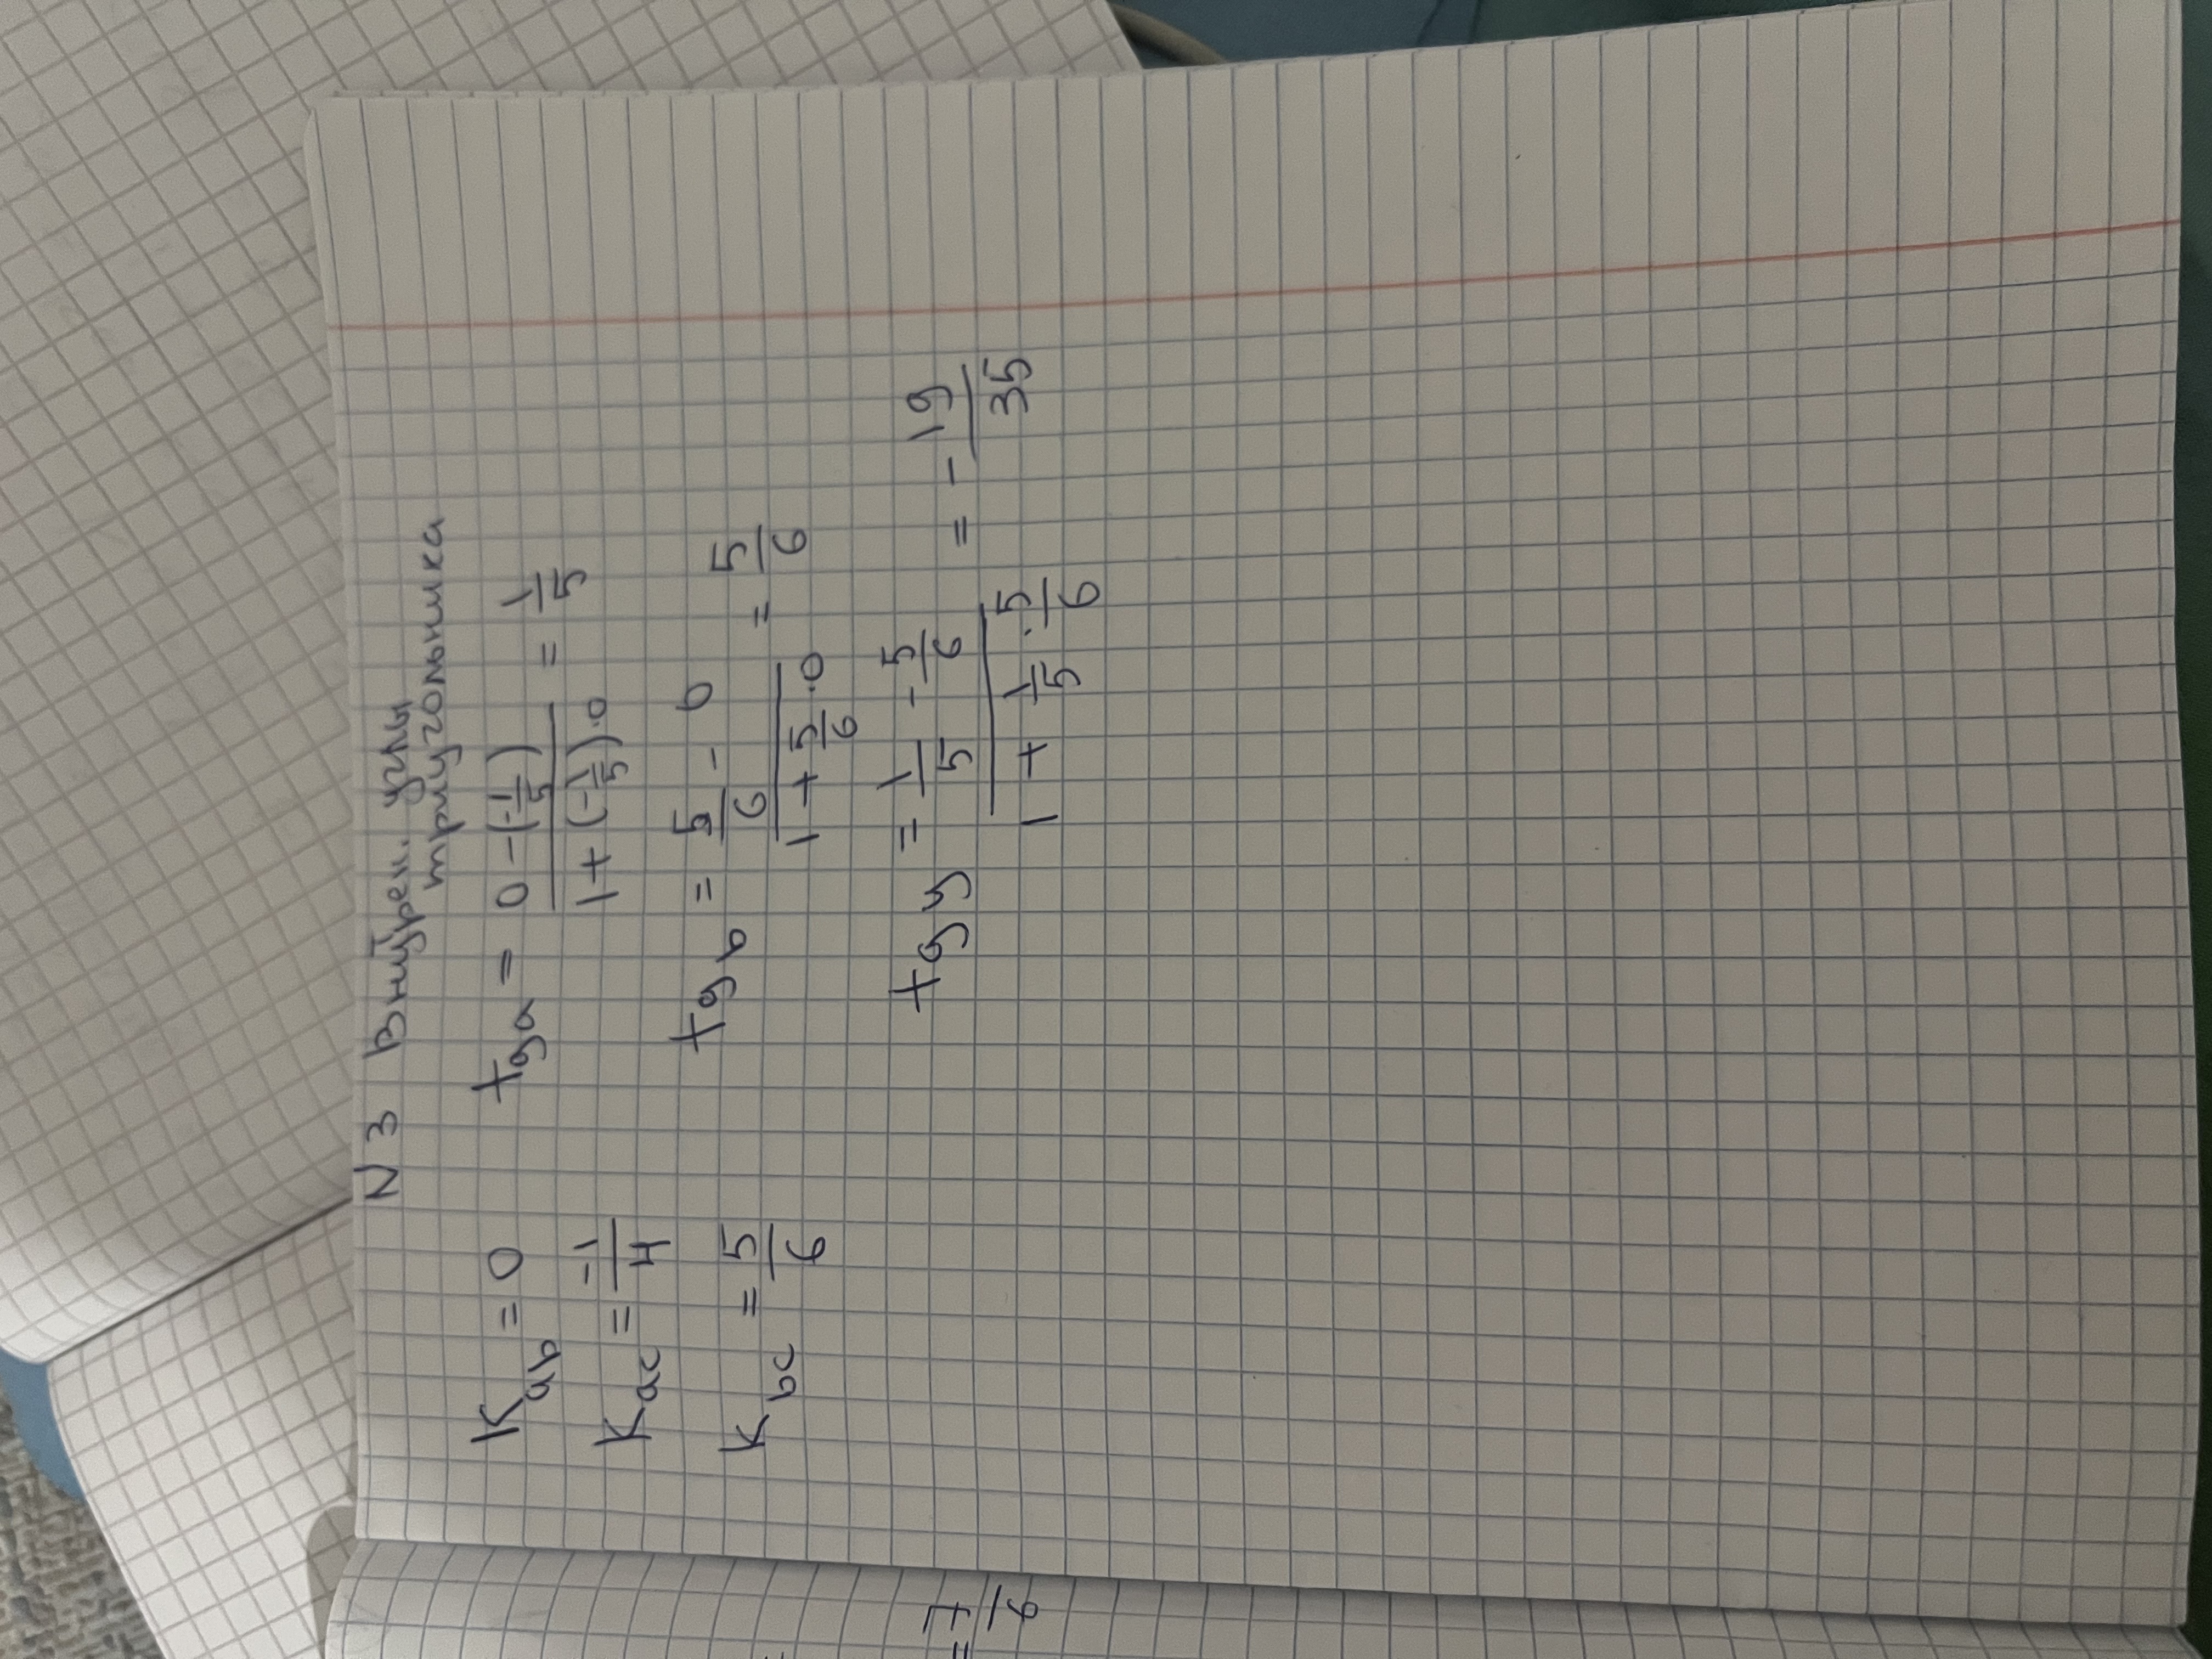 N 3 Внутрен. углы
триугольника
K_ab = 0
K_ac = -1/4
K_bc = 5/6
tg a = (0 - (-1/5)) / (1 + (-1/5) · 0) = 1/5
tg b = (5/6 - 0) / (1 + 5/6 · 0) = 5/6
tg y = (1/5 - 5/6) / (1 + 1/5 · 5/6) = - 19/35